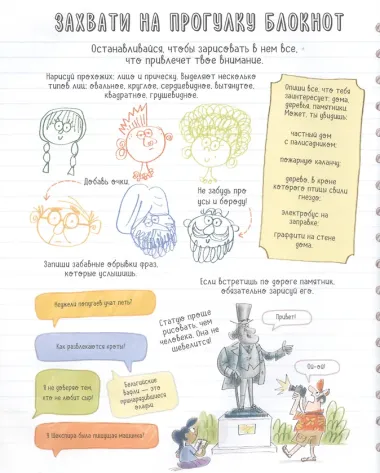 ЗАХВАТИ НА ПРОГУЛКУ БЛОКНОТ
Останавливайся, чтобы зарисовать в нем все,
что привлечет твое внимание.
Нарисуй прохожих: лицо и прическу, выделяют несколько
типов лиц: овальное, круглое, сердцевидное, вытянутое,
квадратное, грушевидное.
Опиши все, что тебя
заинтересует: дома,
деревья, памятники.
Может, ты увидишь:
частный дом
с палисадником:
пожарную каланчу:
дерево, в кроне
которого птицы свили
гнездо:
электробус на
заправке:
граффити на стене
дома.
Добавь очки.
Не забудь про
усы и бороду!
Запиши забавные обрывки фраз,
которые услышишь.
Если встретишь по дороге памятник,
обязательно зарисуй его.
Неужели попугаев учат петь?
Как развлекаются кроты?
Я не доверяю тем,
кто не любит сыр!
Бельгийские
вафли — это
принарядившиеся
оладьи.
У Шекспира была пишущая машинка?
Статую проще
рисовать, чем
человека. Она не
шевелится!
Привет!
Ой-ой!